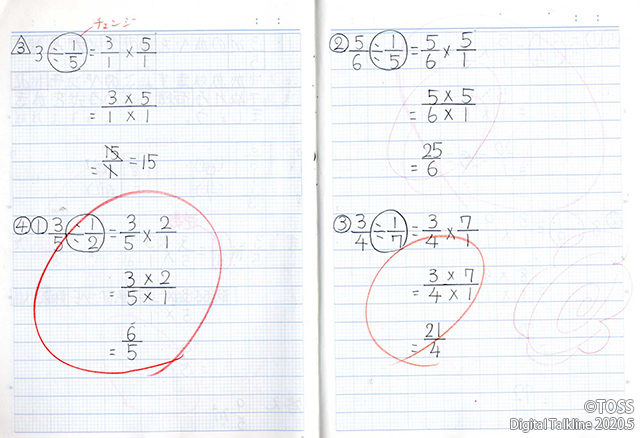 チェンジ
③ 3 ÷ 1/5 = 3/1 × 5/1
= 3 × 5 / 1 × 1
= 15/1 = 15
④ ① 3/5 ÷ 1/2 = 3/5 × 2/1
= 3 × 2 / 5 × 1
= 6/5
② 5/6 ÷ 1/5 = 5/6 × 5/1
= 5 × 5 / 6 × 1
= 25/6
③ 3/4 ÷ 1/7 = 3/4 × 7/1
= 3 × 7 / 4 × 1
= 21/4
©TOSS
Digital Talkline 2020.5